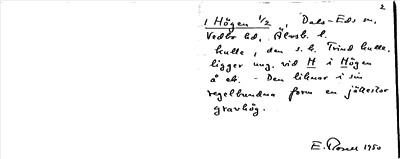 2
1 Högen 1/2, Dals-Eds sn,
Vedbo hd, Älvsb. l.
kulle, den s.k. Trind kulle,
ligger ung. vid H i Högen
å ek. - Den liknar i sin
regelbundna form en jättestor
gravhög.
1950